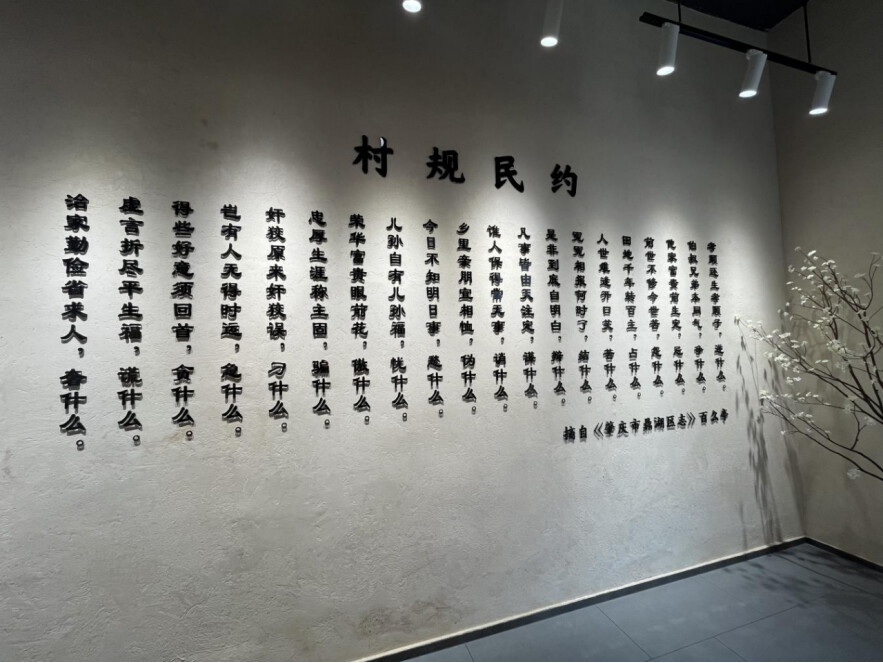 村规民约
孝顺还生孝顺子，逆什么。
伯叔兄弟本同气，争什么。
他家富贵前生定，忌什么。
前世不修今世苦，怨什么。
田地千年转百主，占什么。
人世难逢开口笑，苦什么。
冤冤相报何时了，结什么。
是非到底自明白，辩什么。
凡事皆由天注定，谋什么。
谁人保得常无事，诮什么。
乡里亲朋宜相恤，伪什么。
今日不知明日事，愁什么。
儿孙自有儿孙福，忧什么。
荣华富贵眼前花，傲什么。
忠厚生涯称主固，骗什么。
奸狡原来奸狡误，刁什么。
岂有人无得时运，急什么。
得些好意须回首，贪什么。
虚言折尽平生福，谎什么。
治家勤俭省求人，奢什么。
摘自《肇庆市鼎湖区志》